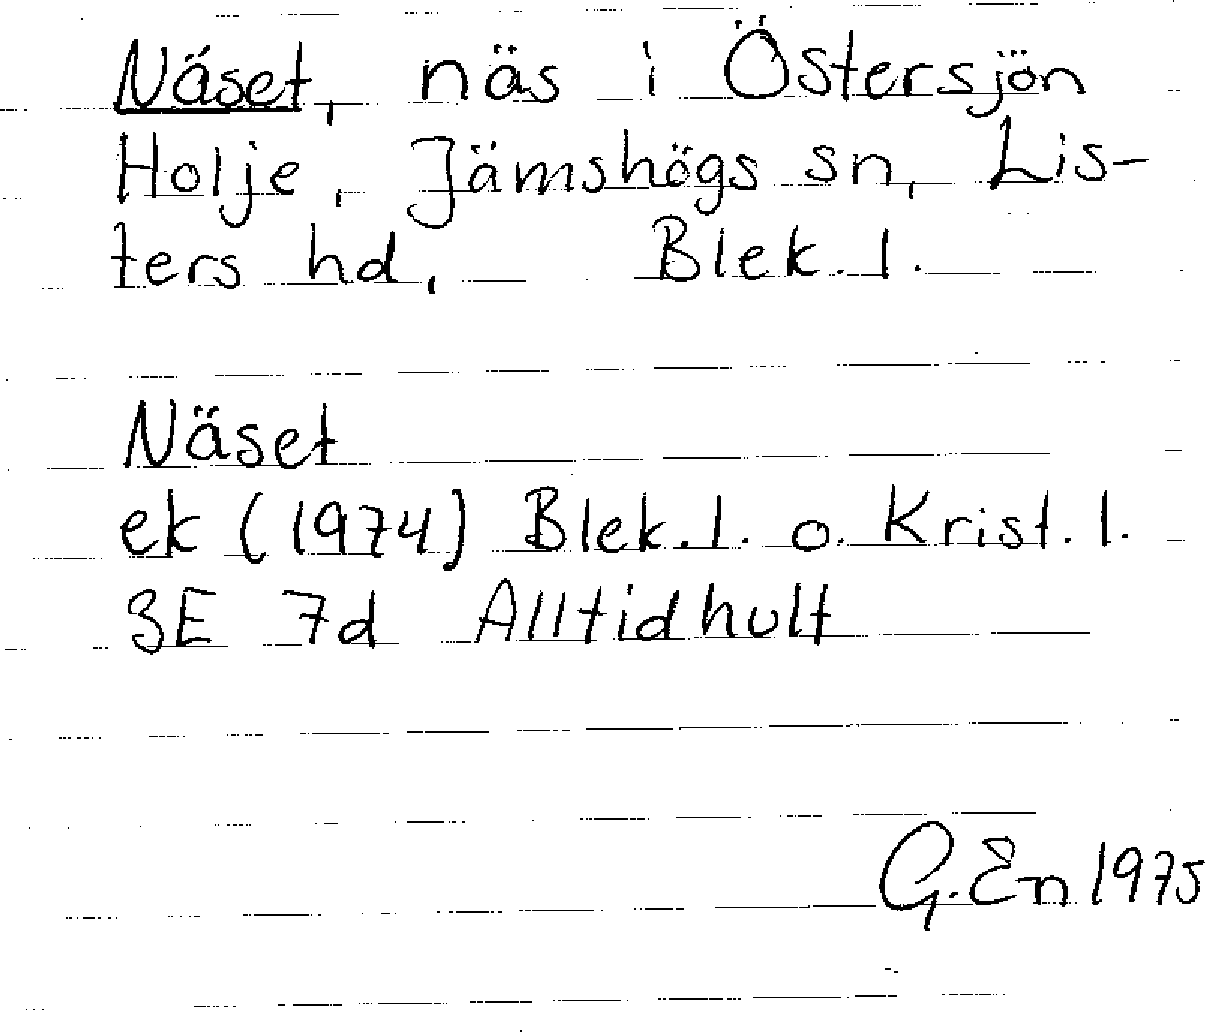 Näset, näs i Östersjön
Holje, Jämshögs sn, Lis-
ters hd, Blek. l.
Näset
ek (1974) Blek. l. o. Krist. l.
3E 7d Alltidhult
G. En 1975